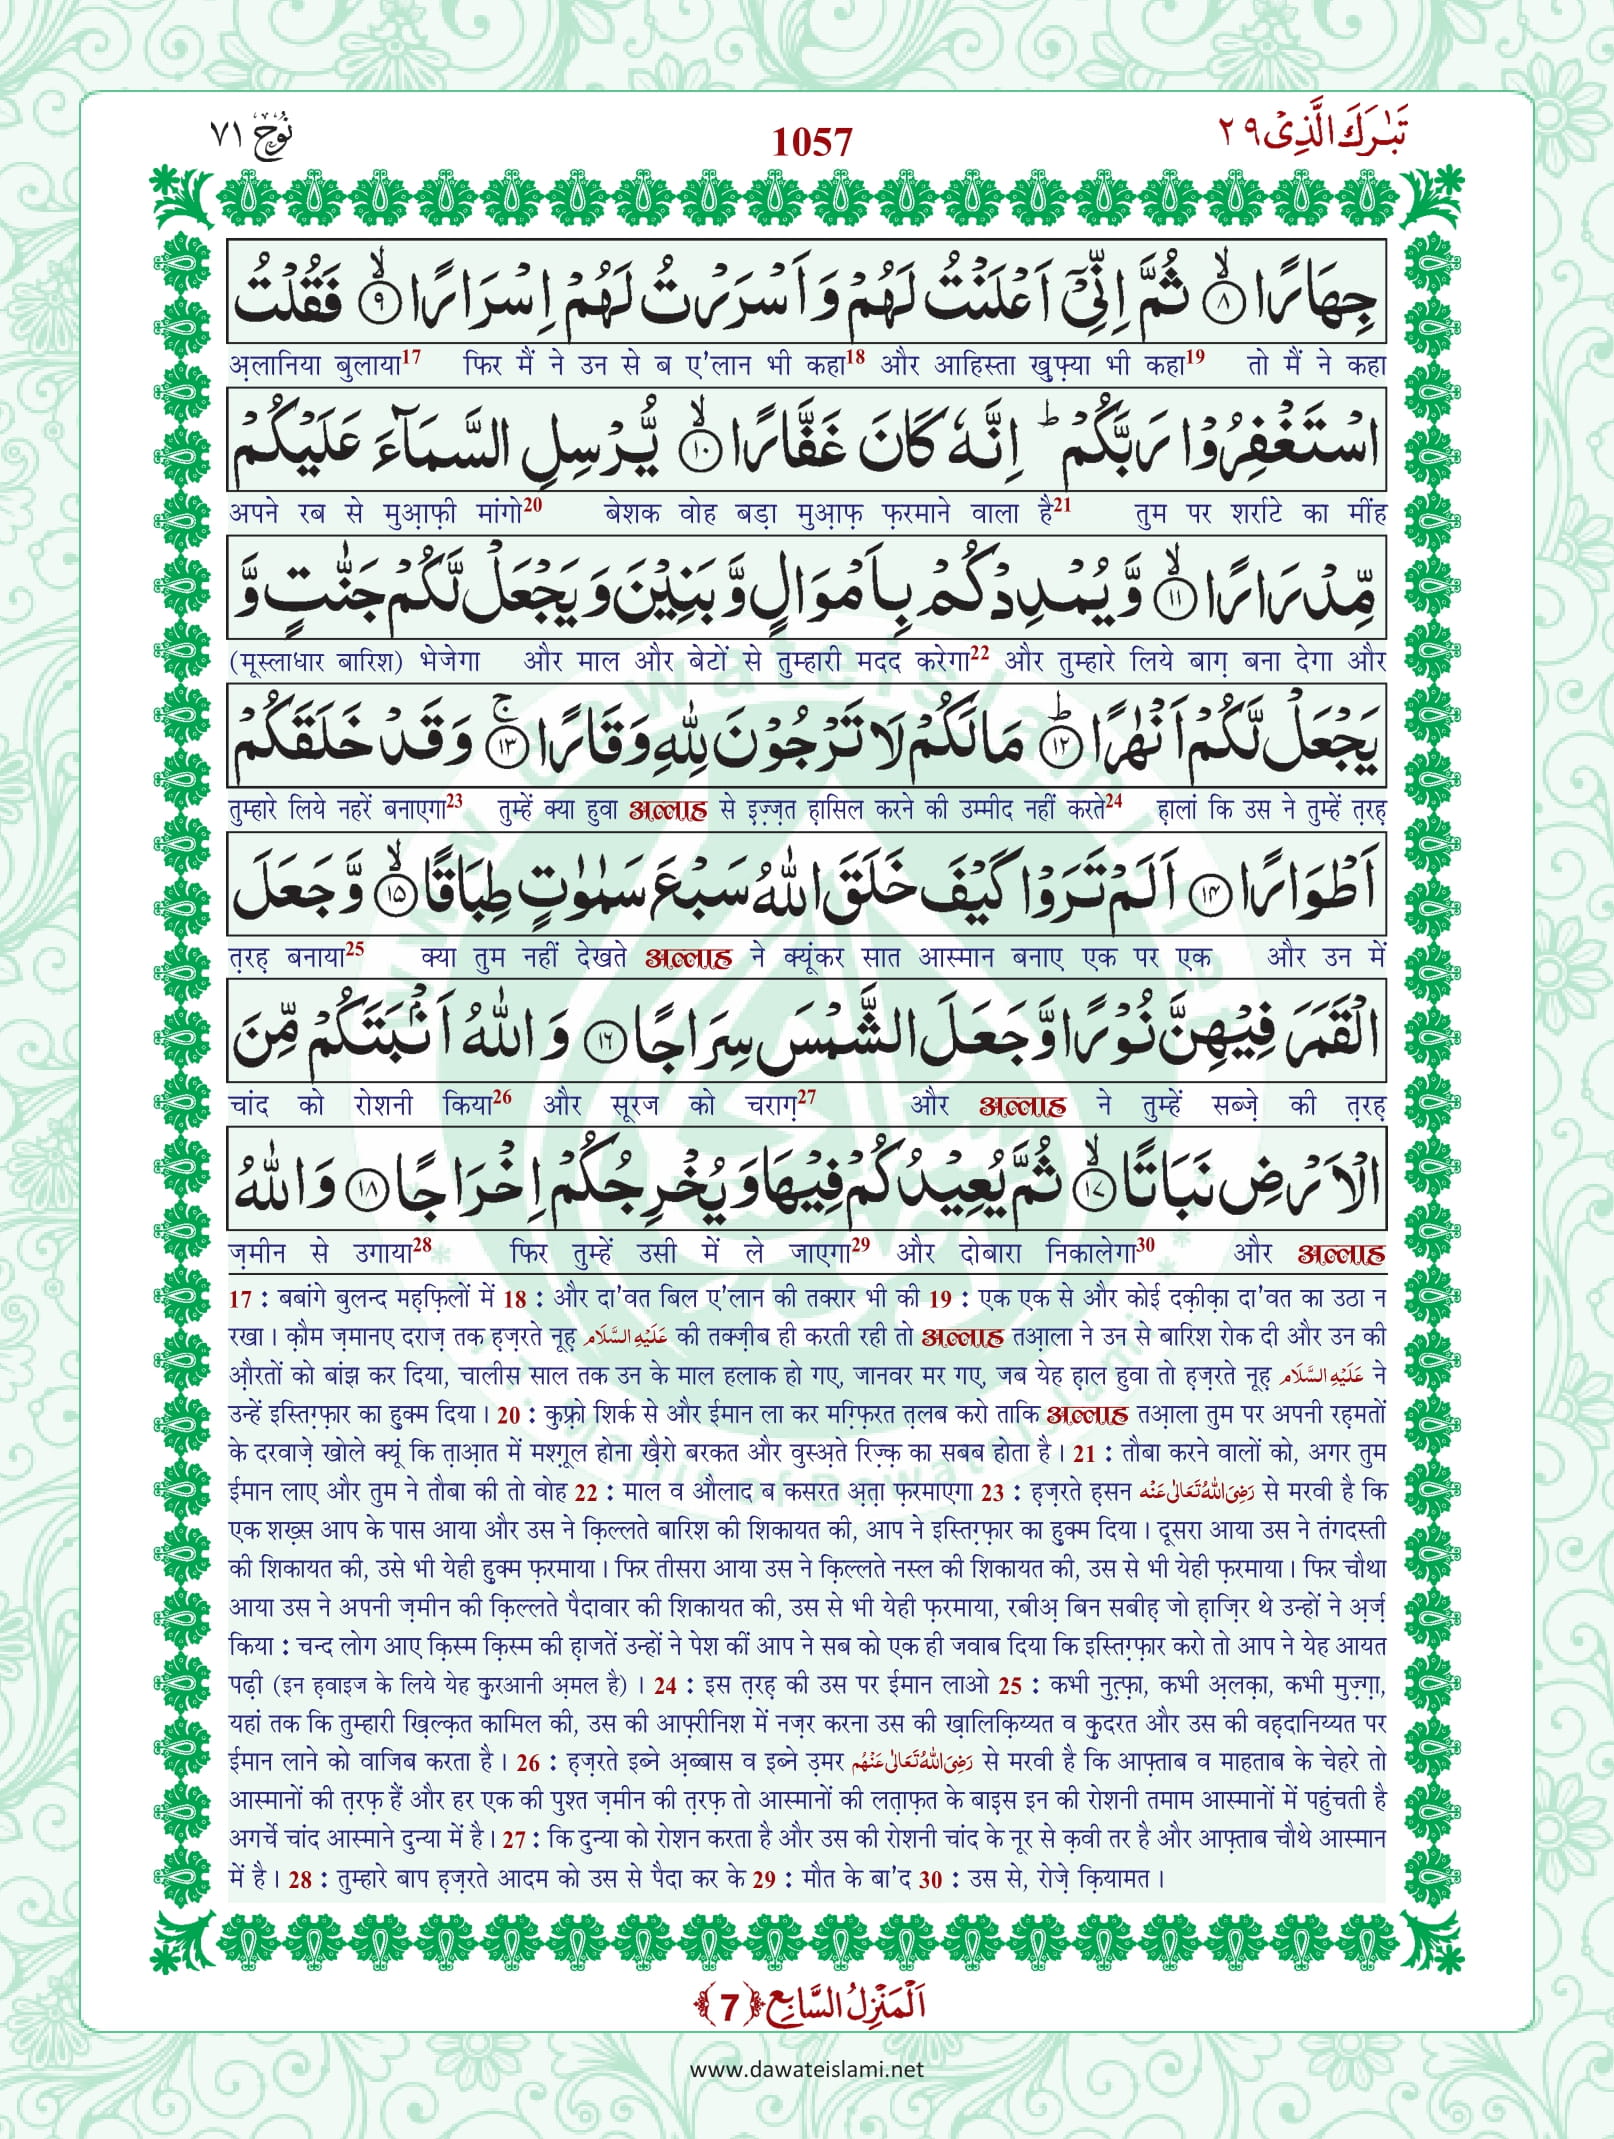 نُوْح ٧١
1057
تَبٰرَكَ الَّذِیْ ٢٩
جِهَارًا ۙ‏﴿۸﴾ ثُمَّ اِنِّیْۤ اَعْلَنْتُ لَهُمْ وَ اَسْرَرْتُ لَهُمْ اِسْرَارًا ۙ‏﴿۹﴾ فَقُلْتُ
अ़लानिया बुलाया17 फिर मैं ने उन से ब ए'लान भी कहा18 और आहिस्ता ख़ुफ़्या भी कहा19 तो मैं ने कहा
اسْتَغْفِرُوْا رَبَّكُمْ ؕ اِنَّهٗ كَانَ غَفَّارًا ۙ‏﴿۱۰﴾ یُّرْسِلِ السَّمَآءَ عَلَیْكُمْ
अपने रब से मुआ़फ़ी मांगो20 बेशक वोह बड़ा मुआ़फ़ फ़रमाने वाला है21 तुम पर शर्राटे का मींह
مِّدْرَارًا ۙ‏﴿۱۱﴾ وَّ یُمْدِدْكُمْ بِاَمْوَالٍ وَّ بَنِیْنَ وَ یَجْعَلْ لَّكُمْ جَنّٰتٍ وَّ
(मूस्लाधार बारिश) भेजेगा और माल और बेटों से तुम्हारी मदद करेगा22 और तुम्हारे लिये बाग़ बना देगा और
یَجْعَلْ لَّكُمْ اَنْهٰرًا ؕ‏﴿۱۲﴾ مَا لَكُمْ لَا تَرْجُوْنَ لِلّٰهِ وَقَارًا ۚ‏﴿۱۳﴾ وَ قَدْ خَلَقَكُمْ
तुम्हारे लिये नहरें बनाएगा23 तुम्हें क्या हुवा अल्लाह से इ़ज़्ज़त ह़ासिल करने की उम्मीद नहीं करते24 ह़ालां कि उस ने तुम्हें त़रह़
اَطْوَارًا ﴿۱۴﴾ اَلَمْ تَرَوْا كَیْفَ خَلَقَ اللّٰهُ سَبْعَ سَمٰوٰتٍ طِبَاقًا ۙ‏﴿۱۵﴾ وَّ جَعَلَ
त़रह़ बनाया25 क्या तुम नहीं देखते अल्लाह ने क्यूंकर सात आस्मान बनाए एक पर एक और उन में
الْقَمَرَ فِیْهِنَّ نُوْرًا وَّ جَعَلَ الشَّمْسَ سِرَاجًا ﴿۱۶﴾ وَ اللّٰهُ اَنْۢبَتَكُمْ مِّنَ
चांद को रोशनी किया26 और सूरज को चराग़27 और अल्लाह ने तुम्हें सब्ज़े की त़रह़
الْاَرْضِ نَبَاتًا ۙ‏﴿۱۷﴾ ثُمَّ یُعِیْدُكُمْ فِیْهَا وَ یُخْرِجُكُمْ اِخْرَاجًا ﴿۱۸﴾ وَ اللّٰهُ
ज़मीन से उगाया28 फिर तुम्हें उसी में ले जाएगा29 और दोबारा निकालेगा30 और अल्लाह
17 : बबांगे बुलन्द मह़फ़िलों में 18 : और दा'वत बिल ए'लान की तक्रार भी की 19 : एक एक से और कोई दक़ीक़ा दा'वत का उठा न
रखा। क़ौम ज़मानए दराज़ तक ह़ज़रते नूह़ عَلَیْهِ السَّلَام की तक्ज़ीब ही करती रही तो अल्लाह तआ़ला ने उन से बारिश रोक दी और उन की
औ़रतों को बांझ कर दिया, चालीस साल तक उन के माल हलाक हो गए, जानवर मर गए, जब येह हाल हुवा तो ह़ज़रते नूह़ عَلَیْهِ السَّلَام ने
उन्हें इस्तिग़्फ़ार का ह़ुक्म दिया। 20 : कुफ़्रो शिर्क से और ईमान ला कर मग़्फ़िरत त़लब करो ताकि अल्लाह तआ़ला तुम पर अपनी रह़मतों
के दरवाज़े खोले क्यूं कि त़ाआ़त में मश्ग़ूल होना ख़ैरो बरकत और वुस्अ़ते रिज़्क़ का सबब होता है। 21 : तौबा करने वालों को, अगर तुम
ईमान लाए और तुम ने तौबा की तो वोह 22 : माल व औलाद ब कसरत अ़त़ा फ़रमाएगा 23 : ह़ज़रते ह़सन رَضِیَ اللّٰهُ تَعَالٰی عَنْه से मरवी है कि
एक शख़्स आप के पास आया और उस ने क़िल्लते बारिश की शिकायत की, आप ने इस्तिग़्फ़ार का ह़ुक्म दिया। दूसरा आया उस ने तंगदस्ती
की शिकायत की, उसे भी येही ह़ुक्म फ़रमाया। फिर तीसरा आया उस ने क़िल्लते नस्ल की शिकायत की, उस से भी येही फ़रमाया। फिर चौथा
आया उस ने अपनी ज़मीन की क़िल्लते पैदावार की शिकायत की, उस से भी येही फ़रमाया, रबीअ़ बिन सबीह़ जो ह़ाज़िर थे उन्हों ने अ़र्ज़
किया : चन्द लोग आए क़िस्म क़िस्म की ह़ाजतें उन्हों ने पेश कीं आप ने सब को एक ही जवाब दिया कि इस्तिग़्फ़ार करो तो आप ने येह आयत
पढ़ी (इन ह़वाइज के लिये येह क़ुरआनी अ़मल है)। 24 : इस त़रह़ की उस पर ईमान लाओ 25 : कभी नुत़्फ़ा, कभी अ़लक़ा, कभी मुज़्ग़ा,
यहां तक कि तुम्हारी ख़िल्क़त कामिल की, उस की आफ्रीनिश में नज़र करना उस की ख़ालिक़िय्यत व क़ुदरत और उस की वह़दानिय्यत पर
ईमान लाने को वाजिब करता है। 26 : ह़ज़रते इब्ने अ़ब्बास व इब्ने उ़मर رَضِیَ اللّٰهُ تَعَالٰی عَنْهُم से मरवी है कि आफ़्ताब व माहताब के चेहरे तो
आस्मानों की त़रफ़ हैं और हर एक की पुश्त ज़मीन की त़रफ़ तो आस्मानों की लत़ाफ़त के बाइ़स इन की रोशनी तमाम आस्मानों में पहुंचती है
अगर्चे चांद आस्माने दुन्या में है। 27 : कि दुन्या को रोशन करता है और उस की रोशनी चांद के नूर से क़वी तर है और आफ़्ताब चौथे आस्मान
में है। 28 : तुम्हारे बाप ह़ज़रते आदम को उस से पैदा कर के 29 : मौत के बा'द 30 : उस से, रोज़े क़ियामत।
اَلْمَنْزِلُ السَّابِع ﴿7﴾
www.dawateislami.net